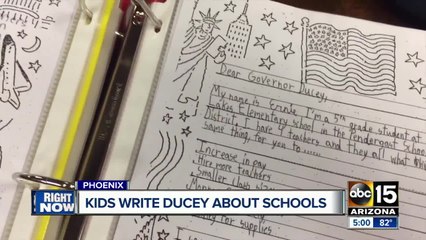 Dear Governor Ducey,
My name is Ernie I'm a 5th grade student at
Elementary school in the Pendergast School
District. I have teachers and they all what the
same thing, for you to
Increase in pay
Hire more teachers
Smaller class
for supplies
PHOENIX
RIGHT NOW
KIDS WRITE DUCEY ABOUT SCHOOLS
abc 15
ARIZONA
5:00 82°